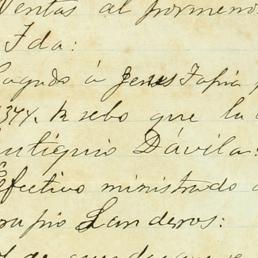 Ventas al pormenor
Ida:
Pagado á Jesus Tapia
1377. k sebo que la
Eutiquio Dávila:
Efectivo ministrado
rapio Landeros: